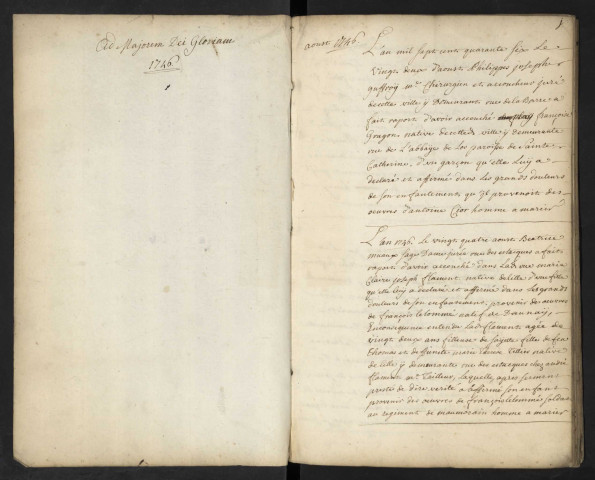 Ad Majorem Dei Gloriam
1746
1
aoust 1746
L'an mil sept cent quarante six Le
vingt deux d'aoust Philippes joseph
guffroy me Chirurgien et accoucheur juré
de cette ville y Demeurant rue de la Barre a
fait raport d'avoir accouché françoise
Dragon native de cette ville y demeurante
rue de L'abbaye de Los paroisse de Sainte
Catherine, d'un garçon qu'elle Luy a
declaré et affirmé dans les grands douleurs
de son enfantement qu'il provenoit des
oeuvres d'antoine Cior homme a marier
L'an 1746 Le vingt quatre aoust Beatrice
meaux sage Dame jurée rue des estacques a fait
raport d'avoir accouché dans Ladte rue marie
Claire joseph flament native de lille d'une fille
qu'elle luy a declaré et affirmé dans Les grands
douleurs de son enfantement, provenir des oeuvres
de françois natif de Daunay,
En consequence entendu Ladte flament agée de
vingt deux ans fileuse de sayette fille de feu
Thomas et de marie native
de lille y demeurante rue des estacques chez andré
flament me Tailleur, laquelle, apres serment
presté de dire verité a affirmé son enfant
provenir des oeuvres de françois soldat
au regiment de homme a marier